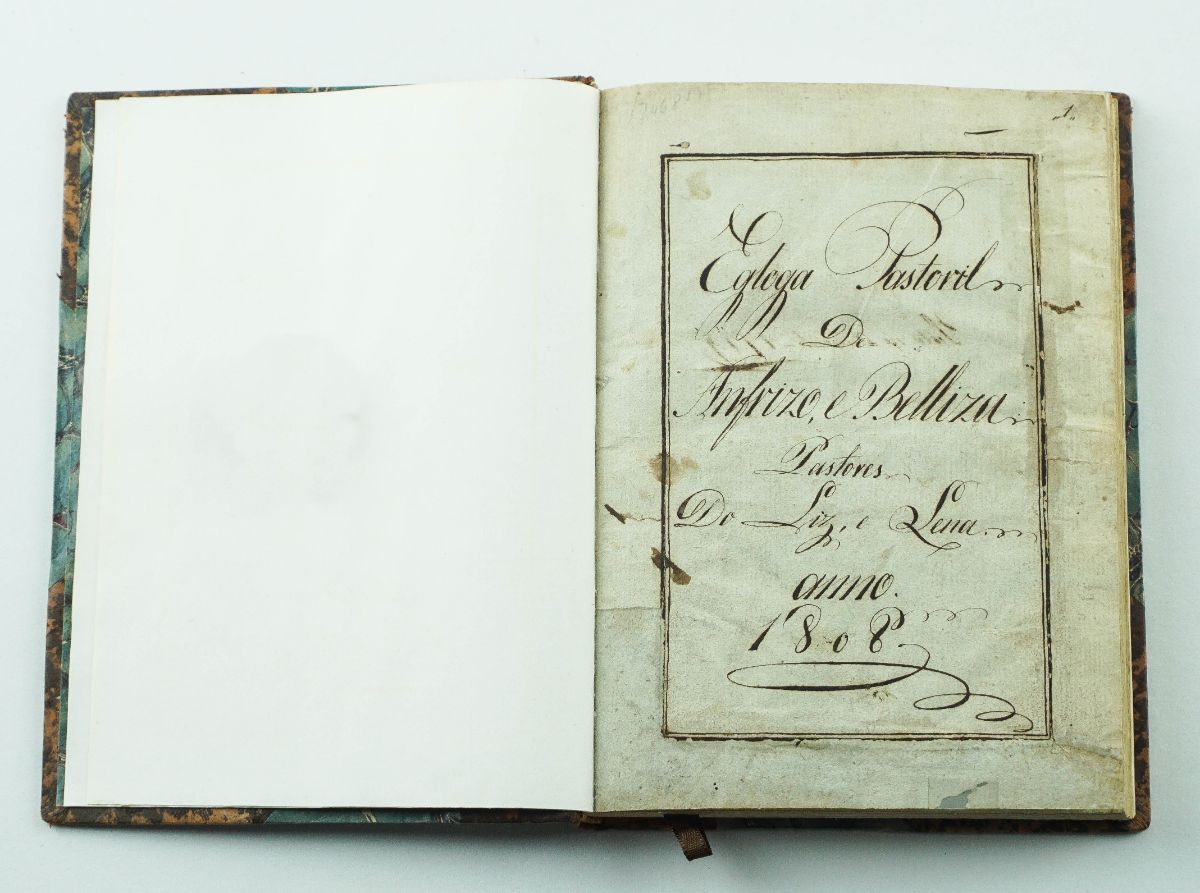 „1„
Egloga Pastoril
De
Anfrizo, e Belliza
Pastores
Do Liz, e Lena.
anno.
1808.